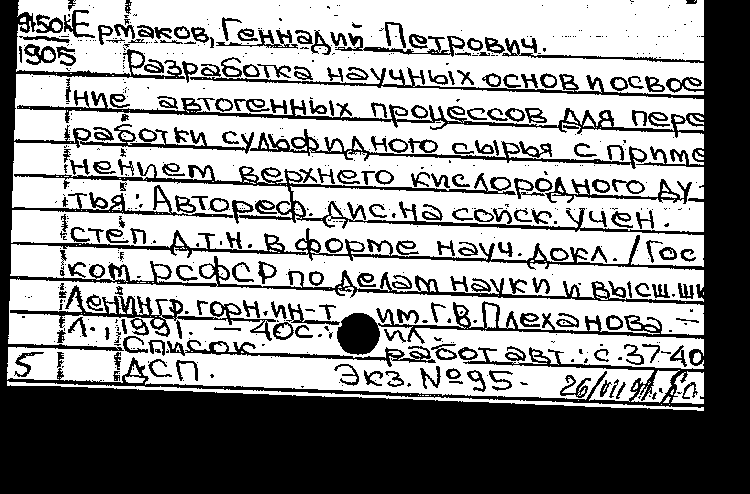 9150к Ермаков, Геннадий Петрович.
1905 Разработка научных основ и освое
ние автогенных процессов для пере
работки сульфидного сырья с приме
нением верхнего кислородного ду-
тья: Автореф. дис. на соиск. учен.
степ. д.т.н. в форме науч. докл. / Гос.
ком. РСФСР по делам науки и высш. шк
Ленингр. горн. ин-т им. Г.В. Плеханова. —
Л., 1991. — 40с.: ил.
Список работ авт.: с. 37-40
5 ДСП. Экз. № 95.